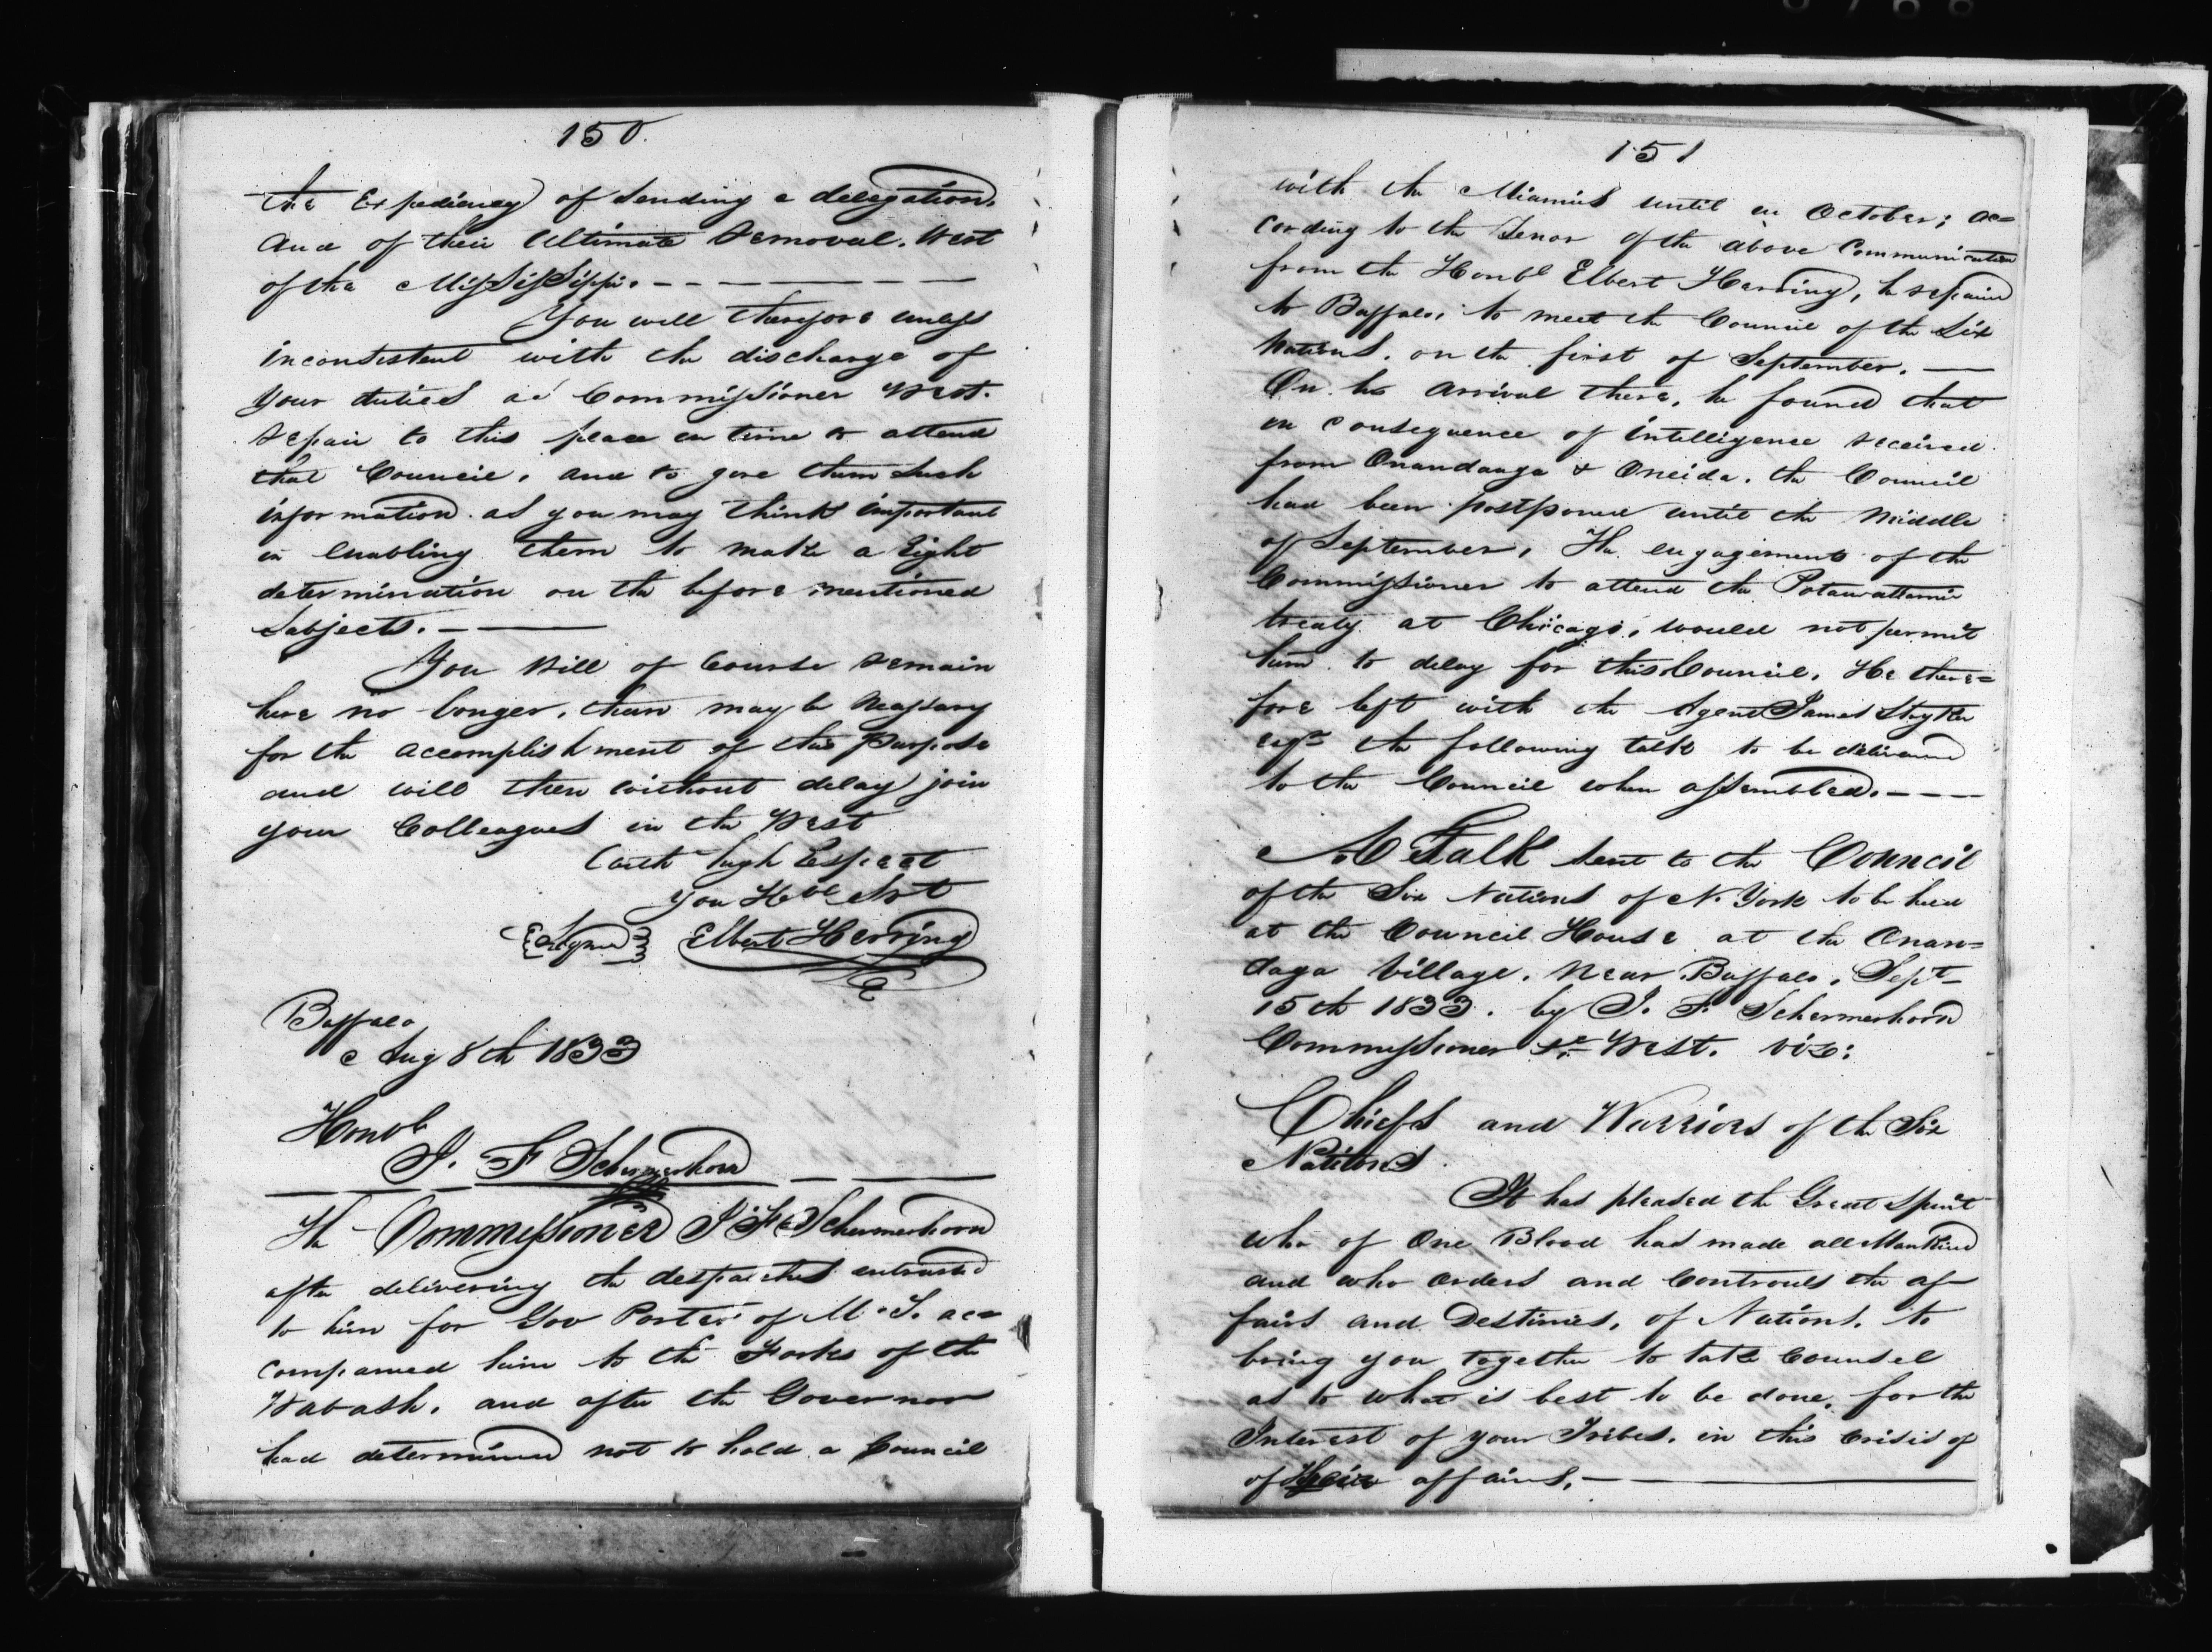 150.
the Expediency of sending a delegation.
and of their Ultimate Removal. West
of the Mississippi. - - - - - -
You will therefore unless
inconsistent with the discharge of
your duties as Commissioner West.
repair to this place in time to attend
that Council, and to give them such
information as you may think important
in enabling them to make a right
determination on the before mentioned
Subjects. - —
You will of Course remain
here no longer, than may be necessary
for the accomplishment of this Purpose
and will then without delay join
your Colleagues in the West
with high Respect
you Hble Svt
{Signed} Elbert Herring
Buffalo
Aug 8th 1833
Honbl
J. F Schermerhorn
The Commissioner J F Schermerhorn
after delivering the despatches entrusted
to him for Gov Porter of M. T. ac=
companied him to the Forks of the
Wabash. and after the Governor
had determined not to hold a Council
151
with the Miamies until in October; ac=
cording to the Tenor of the above Communication
from the Honbl Elbert Herring, he repaired
to Buffalo, to meet the Council of the Six
Nations. on the first of September. —
On his arrival there, he found that
in consequence of intelligence received
from Onandauga & Oneida. the Council
had been postponed until the middle
of September, The engagements of the
Commissioner to attend the Potawattamie
treaty at Chicago, would not permit
him to delay for this Council. He there=
fore left with the Agent James Stryker
esqr the following talk to be delivered
to the Council when assembled. - - -
A Talk sent to the Council
of the Six Nations of N. York to be held
at the Council House at the Onan=
daga Village. Near Buffalo, Sept
15th 1833. by J. F. Schermerhorn
Commissioner &c West. viz:
Chiefs and Warriors of the Six
Nations.
It has pleased the Great Spirit
who of One Blood has made all Mankind
and who orders and Controuls the af
fairs and Destinies, of Nations. to
bring you together to take Counsel
as to what is best to be done, for the
Interest of your Tribes. in this Crisis of
of their affairs. - —